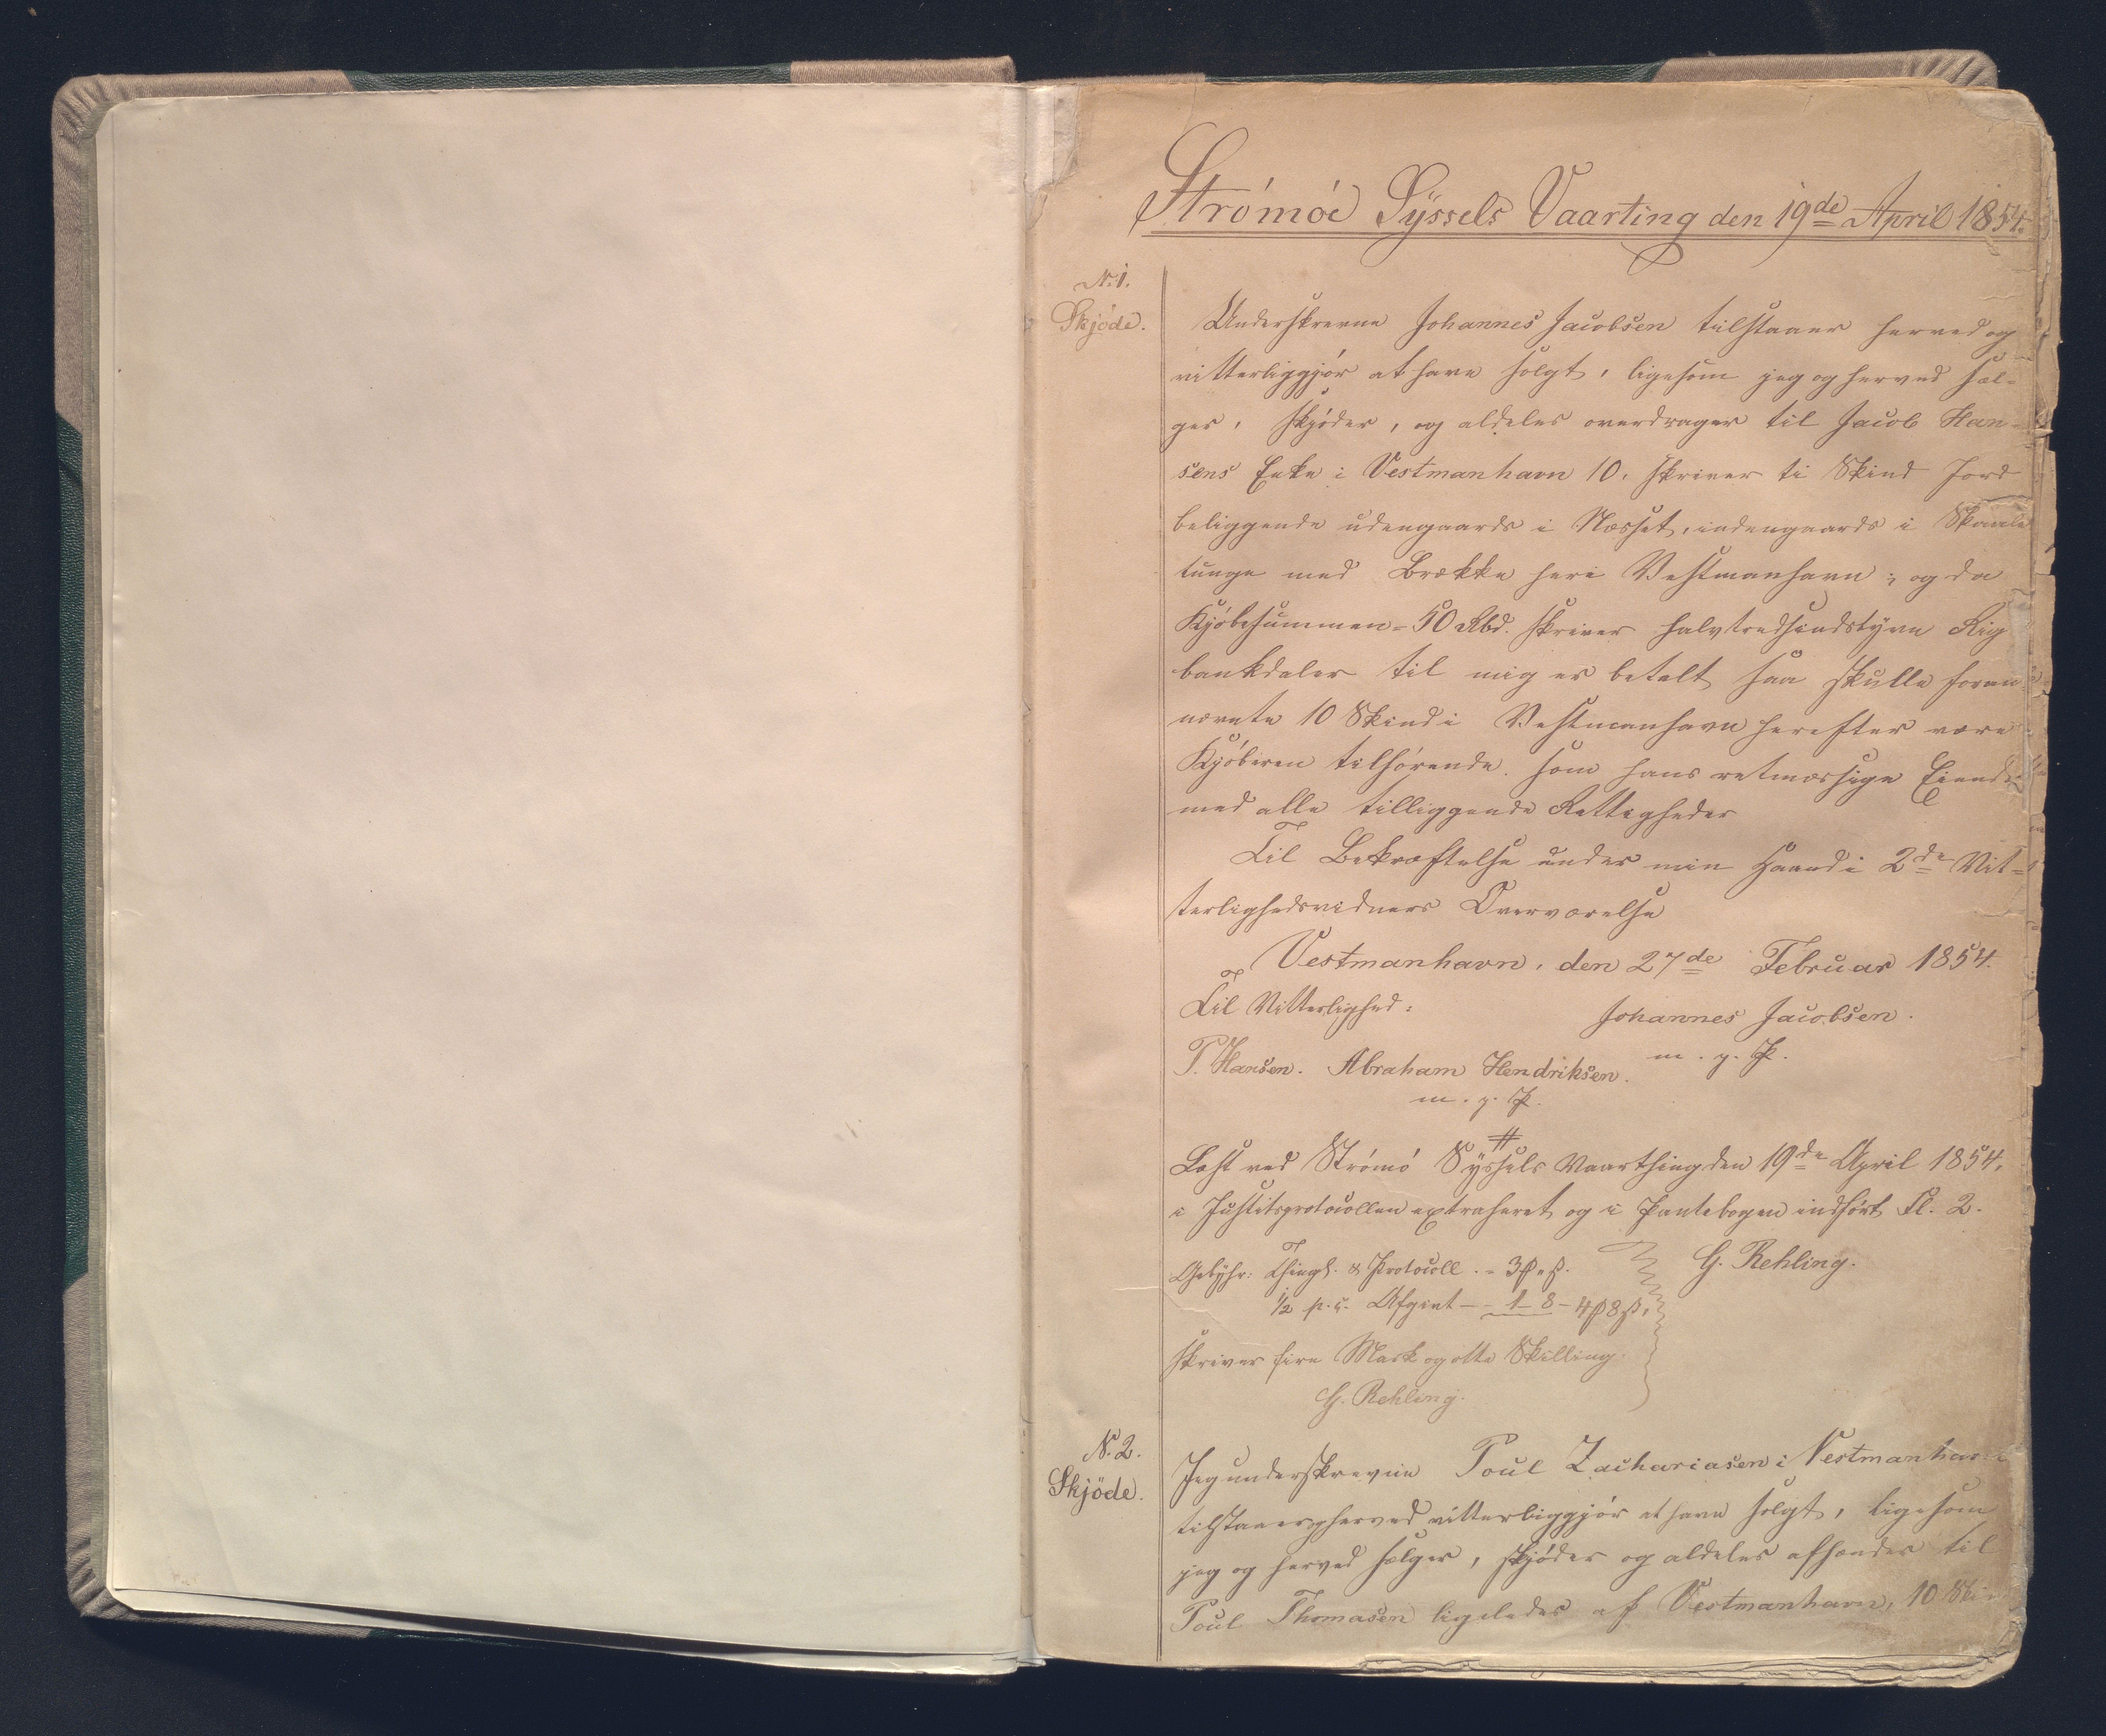 Strömöe Sÿssels Vaarting den 19de April 1854.
N. 1.
Skjöde.
Underskrevne Johannes Jacobsen tilstaaer herved og
vitterliggjør at have solgt, ligesom jeg og herved sæl-
ger, skjøder, og aldeles overdrager til Jacob Han-
sens Enke i Vestmanhavn 10, skriver ti Skind Jord
beliggende udengaards i Næsset, indengaards i Skaale
tunge med Brække heri Vestmanhavn; og da
Kjøbesummen = 50 Rbd. skriver halvtredsindstÿve Rig
bankdaler til mig er betalt saa skulle foran
nævnte 10 Skind i Vestmanhavn herefter være
Kjøberen tilhørende som hans retmæssige Eiendom
med alle tilliggende Rettigheder
Til Bekræftelse under min Haand i 2de Vit-
terlighedsvidners Overværelse
Vestmanhavn, den 27de Februar 1854.
Til Vitterlighed:
Johannes Jacobsen.
m. p. P.
P. Hansen. Abraham Hendriksen.
m. p. P.
#
Læst ved Strömö Sÿssels Vaarthing den 19de April 1854,
i Justitsprotocollen extraheret og i Pantebogen indført Fl. 2.
Gebÿhr: Thingl. & Protocoll. = 3
G. Rehling.
½ p. c. Afgivt - 1 - 8 - 4 8
skriver fire Mark og otte Skilling.
G. Rehling.
N. 2.
Skjöde.
Jeg underskrevne Poul Zachariasen i Vestmanhavn
tilstaaer og herved vitterliggjør at have solgt, ligesom
jeg og herved sælger, skjøder og aldeles afhænder til
Poul Thomasen ligeledes af Vestmanhavn, 10 Ski